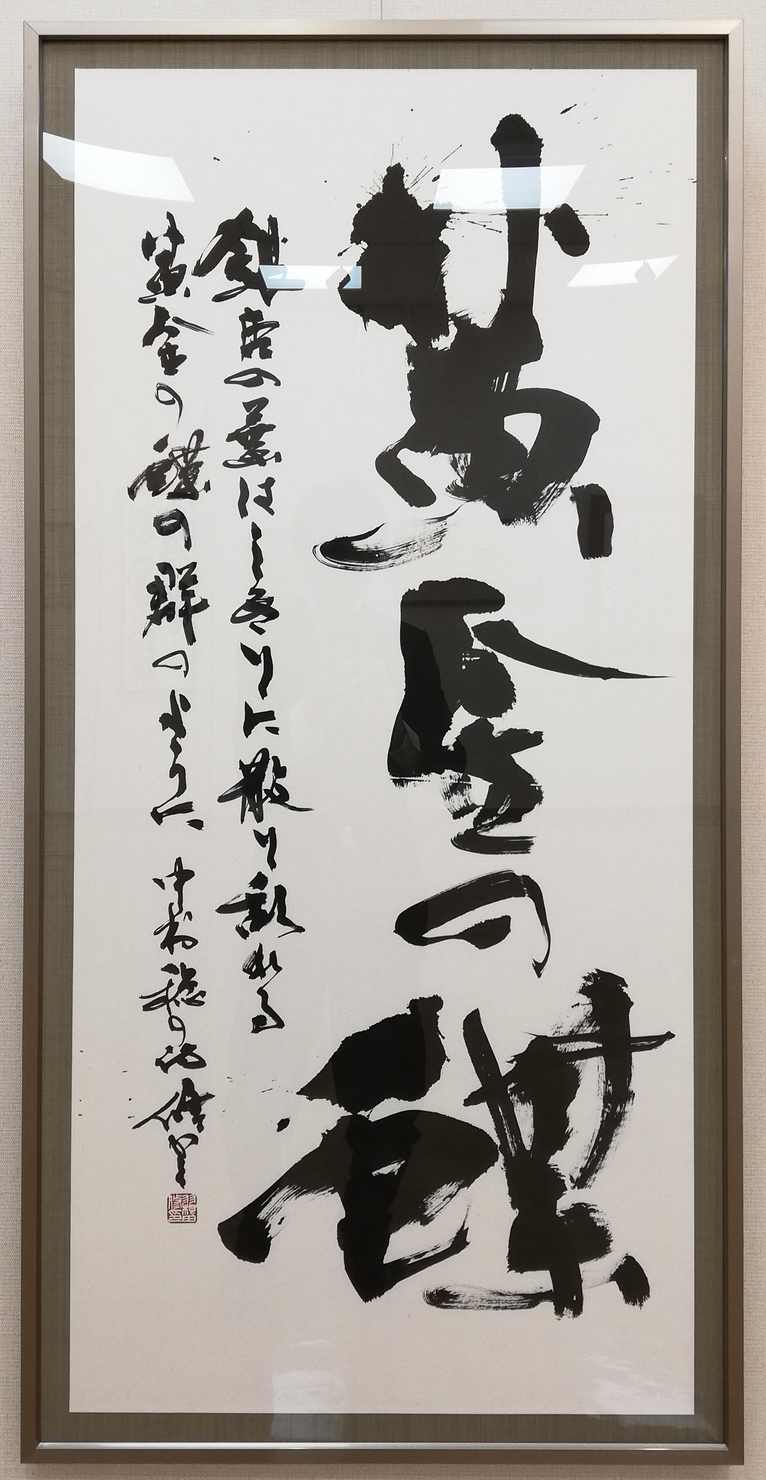 黄金の蝶
銀杏の葉はしきりに散り乱れる
黄金の蝶の群のように 中村稔の詩 修書